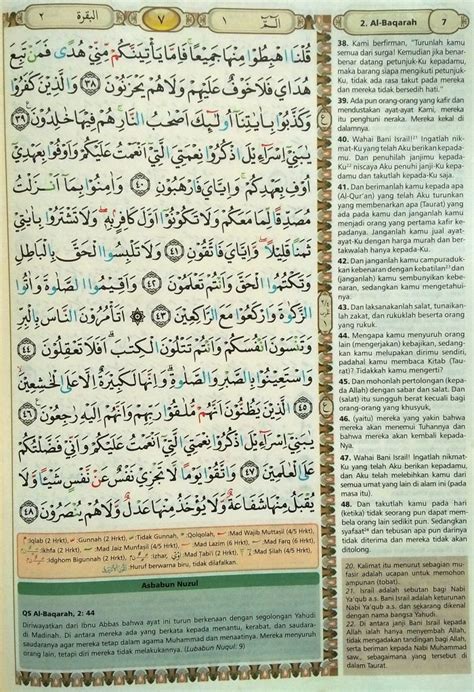 البقرة ٢
٧
الـمّ ١
قُلْنَا اهْبِطُوْا مِنْهَا جَمِيْعًا فَاِمَّا يَأْتِيَنَّكُمْ مِّنِّيْ هُدًى فَمَنْ تَبِعَ
هُدَايَ فَلَا خَوْفٌ عَلَيْهِمْ وَلَا هُمْ يَحْزَنُوْنَ ٣٨ وَالَّذِيْنَ كَفَرُوْا
وَكَذَّبُوْا بِاٰيٰتِنَآ اُولٰۤىِٕكَ اَصْحٰبُ النَّارِ هُمْ فِيْهَا خٰلِدُوْنَ ٣٩
يٰبَنِيْٓ اِسْرَاۤءِيْلَ اذْكُرُوْا نِعْمَتِيَ الَّتِيْٓ اَنْعَمْتُ عَلَيْكُمْ وَاَوْفُوْا بِعَهْدِيْٓ
اُوْفِ بِعَهْدِكُمْ وَاِيَّايَ فَارْهَبُوْنِ ٤٠ وَاٰمِنُوْا بِمَآ اَنْزَلْتُ
مُصَدِّقًا لِّمَا مَعَكُمْ وَلَا تَكُوْنُوْٓا اَوَّلَ كَافِرٍۢ بِهٖ ۖ وَلَا تَشْتَرُوْا بِاٰيٰتِيْ
ثَمَنًا قَلِيْلًا ۖ وَاِيَّايَ فَاتَّقُوْنِ ٤١ وَلَا تَلْبِسُوا الْحَقَّ بِالْبَاطِلِ
وَتَكْتُمُوا الْحَقَّ وَاَنْتُمْ تَعْلَمُوْنَ ٤٢ وَاَقِيْمُوا الصَّلٰوةَ وَاٰتُوا
الزَّكٰوةَ وَارْكَعُوْا مَعَ الرّٰكِعِيْنَ ٤٣ ۞ اَتَأْمُرُوْنَ النَّاسَ بِالْبِرِّ
وَتَنْسَوْنَ اَنْفُسَكُمْ وَاَنْتُمْ تَتْلُوْنَ الْكِتٰبَ ۗ اَفَلَا تَعْقِلُوْنَ ٤٤
وَاسْتَعِيْنُوْا بِالصَّبْرِ وَالصَّلٰوةِ ۗ وَاِنَّهَا لَكَبِيْرَةٌ اِلَّا عَلَى الْخٰشِعِيْنَ ٤٥
الَّذِيْنَ يَظُنُّوْنَ اَنَّهُمْ مُّلٰقُوْا رَبِّهِمْ وَاَنَّهُمْ اِلَيْهِ رٰجِعُوْنَ ٤٦
يٰبَنِيْٓ اِسْرَاۤءِيْلَ اذْكُرُوْا نِعْمَتِيَ الَّتِيْٓ اَنْعَمْتُ عَلَيْكُمْ وَاَنِّيْ فَضَّلْتُكُمْ
عَلَى الْعٰلَمِيْنَ ٤٧ وَاتَّقُوْا يَوْمًا لَّا تَجْزِيْ نَفْسٌ عَنْ نَّفْسٍ شَيْـًٔا وَّلَا
يُقْبَلُ مِنْهَا شَفَاعَةٌ وَّلَا يُؤْخَذُ مِنْهَا عَدْلٌ وَّلَا هُمْ يُنْصَرُوْنَ ٤٨
:Iqlab (2 Hrkt), :Gunnah (2 Hrkt), :Tidak Gunnah, :Qolqolah, :Mad Wajib Muttasil (4/5 Hrkt)
:Ikhfa (2 Hrkt), :Mad Jaiz Munfasil (4/5 Hrkt), :Mad Lazim (6 Hrkt), :Mad Farq (6 Hrkt)
:Idghom Bigunnah (2 Hrkt), :Izhar, :Mad Tabi'i (2 Hrkt), :Mad Silah (4/5 Hrkt)
:Huruf berwarna biru, tidak dilafalkan.
Asbabun Nuzul
QS Al-Baqarah, 2: 44
Diriwayatkan dari Ibnu Abbas bahwa ayat ini turun berkenaan dengan segolongan Yahudi
di Madinah. Di antara mereka ada yang berkata kepada menantu, kerabat, dan saudara-
saudaranya agar mereka tetap dalam agama Muhammad dan menaatinya. Mereka menyuruh
orang lain, tetapi diri mereka tidak melakukannya. (Lubabun Nuqul: 9)
2. Al-Baqarah 7
38. Kami berfirman, "Turunlah kamu
semua dari surga! Kemudian jika benar-
benar datang petunjuk-Ku kepadamu,
maka barang siapa mengikuti petunjuk-
Ku, tidak ada rasa takut pada mereka
dan mereka tidak bersedih hati."
39. Ada pun orang-orang yang kafir dan
mendustakan ayat-ayat Kami, mereka
itu penghuni neraka. Mereka kekal di
dalamnya.
40. Wahai Bani Israil!21 Ingatlah nik-
mat-Ku yang telah Aku berikan kepada-
mu. Dan penuhilah janjimu kepada-
Ku22 niscaya Aku penuhi janji-Ku kepa-
damu dan takutlah kepada-Ku saja.
41. Dan berimanlah kamu kepada apa
(Al-Qur'an) yang telah Aku turunkan
yang membenarkan apa (Taurat) yang
ada pada kamu dan janganlah kamu
menjadi orang yang pertama kafir ke-
padanya. Janganlah kamu jual ayat-
ayat-Ku dengan harga murah dan ber-
takwalah hanya kepada-Ku.
42. Dan janganlah kamu campuraduk-
kan kebenaran dengan kebatilan23 dan
(janganlah) kamu sembunyikan kebe-
naran, sedangkan kamu mengetahui-
nya.
43. Dan laksanakanlah salat, tunaikan-
lah zakat, dan rukuklah beserta orang
yang rukuk.
44. Mengapa kamu menyuruh orang
lain (mengerjakan) kebajikan, sedang-
kan kamu melupakan dirimu sendiri,
padahal kamu membaca Kitab (Tau-
rat)? Tidakkah kamu mengerti?
45. Dan mohonlah pertolongan (kepa-
da Allah) dengan sabar dan salat. Dan
(salat) itu sungguh berat kecuali bagi
orang-orang yang khusyuk,
46. (yaitu) mereka yang yakin bahwa
mereka akan menemui Tuhannya dan
bahwa mereka akan kembali kepada-
Nya.
47. Wahai Bani Israil! Ingatlah nikmat-
Ku yang telah Aku berikan kepadamu
dan Aku telah melebihkan kamu dari
semua umat yang lain di alam ini (pada
masa itu).
48. Dan takutlah kamu pada hari
(ketika) tidak seorang pun dapat mem-
bela orang lain sedikit pun. Sedangkan
syafaat24 dan tebusan apa pun darinya
tidak diterima dan mereka tidak akan
ditolong.
20. Kalimat itu menurut sebagian mu-
fasir adalah ucapan untuk memohon
ampunan (tobat).
21. Israil adalah sebutan bagi Nabi
Ya'qub a.s. Bani Israil adalah keturunan
Nabi Ya'qub a.s. dan sekarang dikenal
dengan nama bangsa Yahudi.
22. Di antara janji Bani Israil kepada
Allah ialah hanya menyembah Allah,
tidak mengadakan tandingan bagi Allah,
serta beriman kepada Nabi Muhammad
saw., sebagaimana yang tersebut di
dalam Taurat.